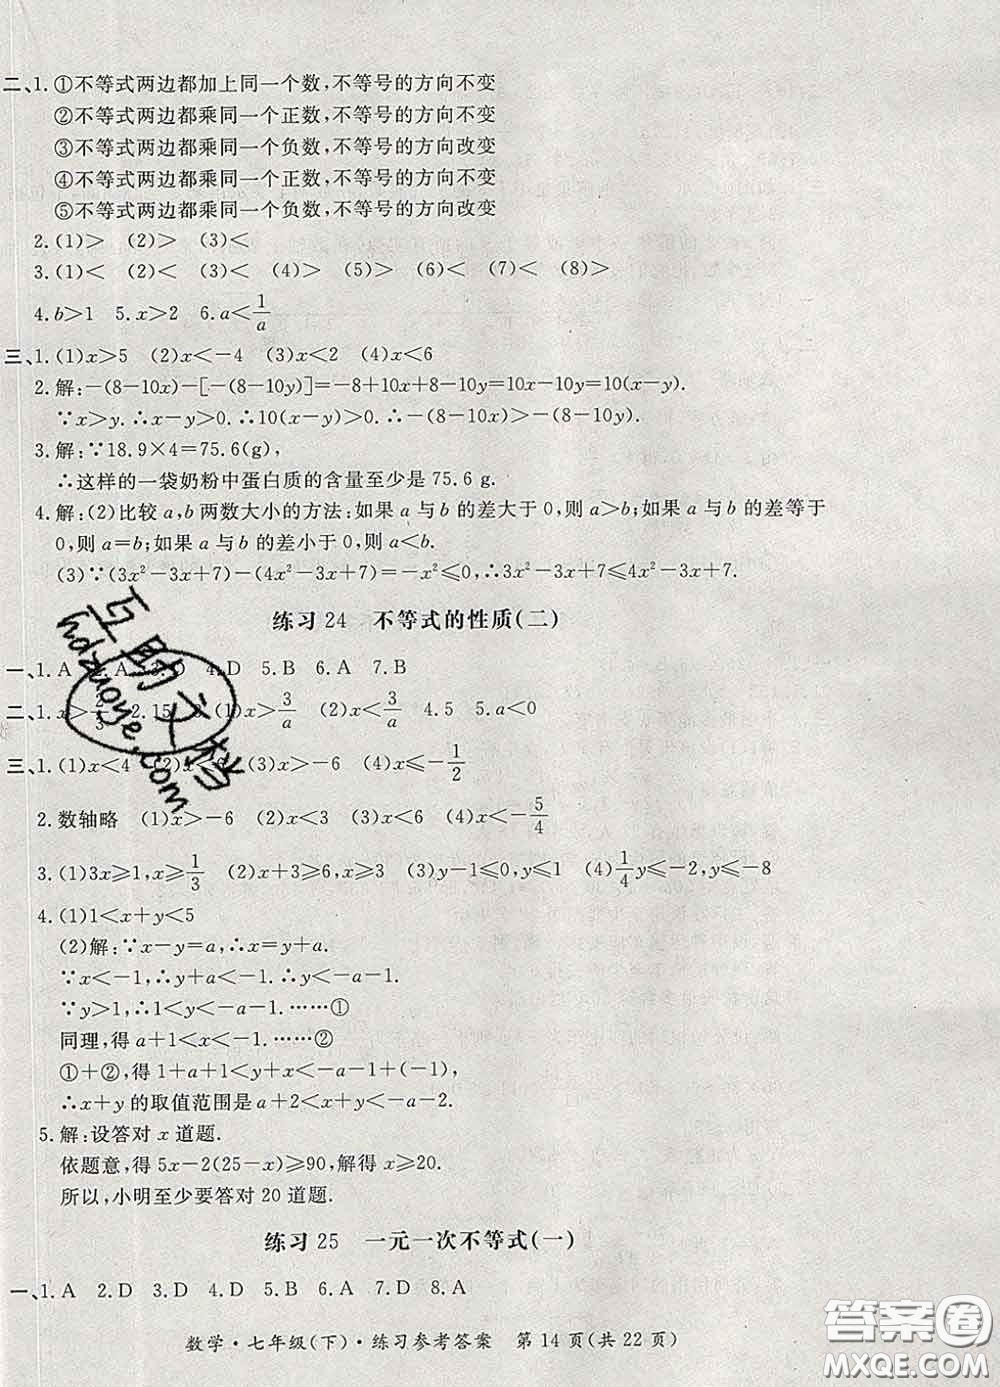 二、1.①不等式两边都加上同一个数,不等号的方向不变
②不等式两边都乘同一个正数,不等号的方向不变
③不等式两边都乘同一个负数,不等号的方向改变
④不等式两边都乘同一个正数,不等号的方向不变
⑤不等式两边都乘同一个负数,不等号的方向改变
2.(1)> (2)> (3)<
3.(1)< (2)< (3)< (4)> (5)> (6)< (7)< (8)>
4.b>1 5.x>2 6.a<1/a
三、1.(1)x>5 (2)x<-4 (3)x<2 (4)x<6
2.解:-(8-10x)-[-(8-10y)]=-8+10x+8-10y=10x-10y=10(x-y).
∵x>y.∴x-y>0.∴10(x-y)>0.∴-(8-10x)>-(8-10y).
3.解:∵18.9×4=75.6(g),
∴这样的一袋奶粉中蛋白质的含量至少是75.6 g.
4.解:(2)比较a,b两数大小的方法:如果a与b的差大于0,则a>b;如果a与b的差等于
0,则a=b;如果a与b的差小于0,则a<b.
(3)∵(3x²-3x+7)-(4x²-3x+7)=-x²≤0,∴3x²-3x+7≤4x²-3x+7.
练习24 不等式的性质(二)
一、1.A 2.A 3.D 4.D 5.B 6.A 7.B
二、1.x> 2.15 (1)x>3/a (2)x<3/a 4.5 5.a<0
三、1.(1)x<4 (2)x< (3)x>-6 (4)x≤-1/2
2.数轴略 (1)x>-6 (2)x<3 (3)x<6 (4)x<-5/4
3.(1)3x≥1,x≥1/3 (2)x+3≥6,x≥3 (3)y-1≤0,y≤1 (4)1/4y≤-2,y≤-8
4.(1)1<x+y<5
(2)解:∵x-y=a,∴x=y+a.
∵x<-1,∴y+a<-1.∴y<-a-1.
∵y>1,∴1<y<-a-1.……①
同理,得a+1<x<-1.……②
①+②,得1+a+1<y+x<-a-1+(-1),
∴x+y的取值范围是a+2<x+y<-a-2.
5.解:设答对x道题.
依题意,得5x-2(25-x)≥90,解得x≥20.
所以,小明至少要答对20道题.
练习25 一元一次不等式(一)
一、1.A 2.D 3.C 4.D 5.B 6.A 7.D 8.A
数学·七年级(下)·练习参考答案 第14页(共22页)
互助文档
hdzuoye.com
答案圈
MXQE.COM